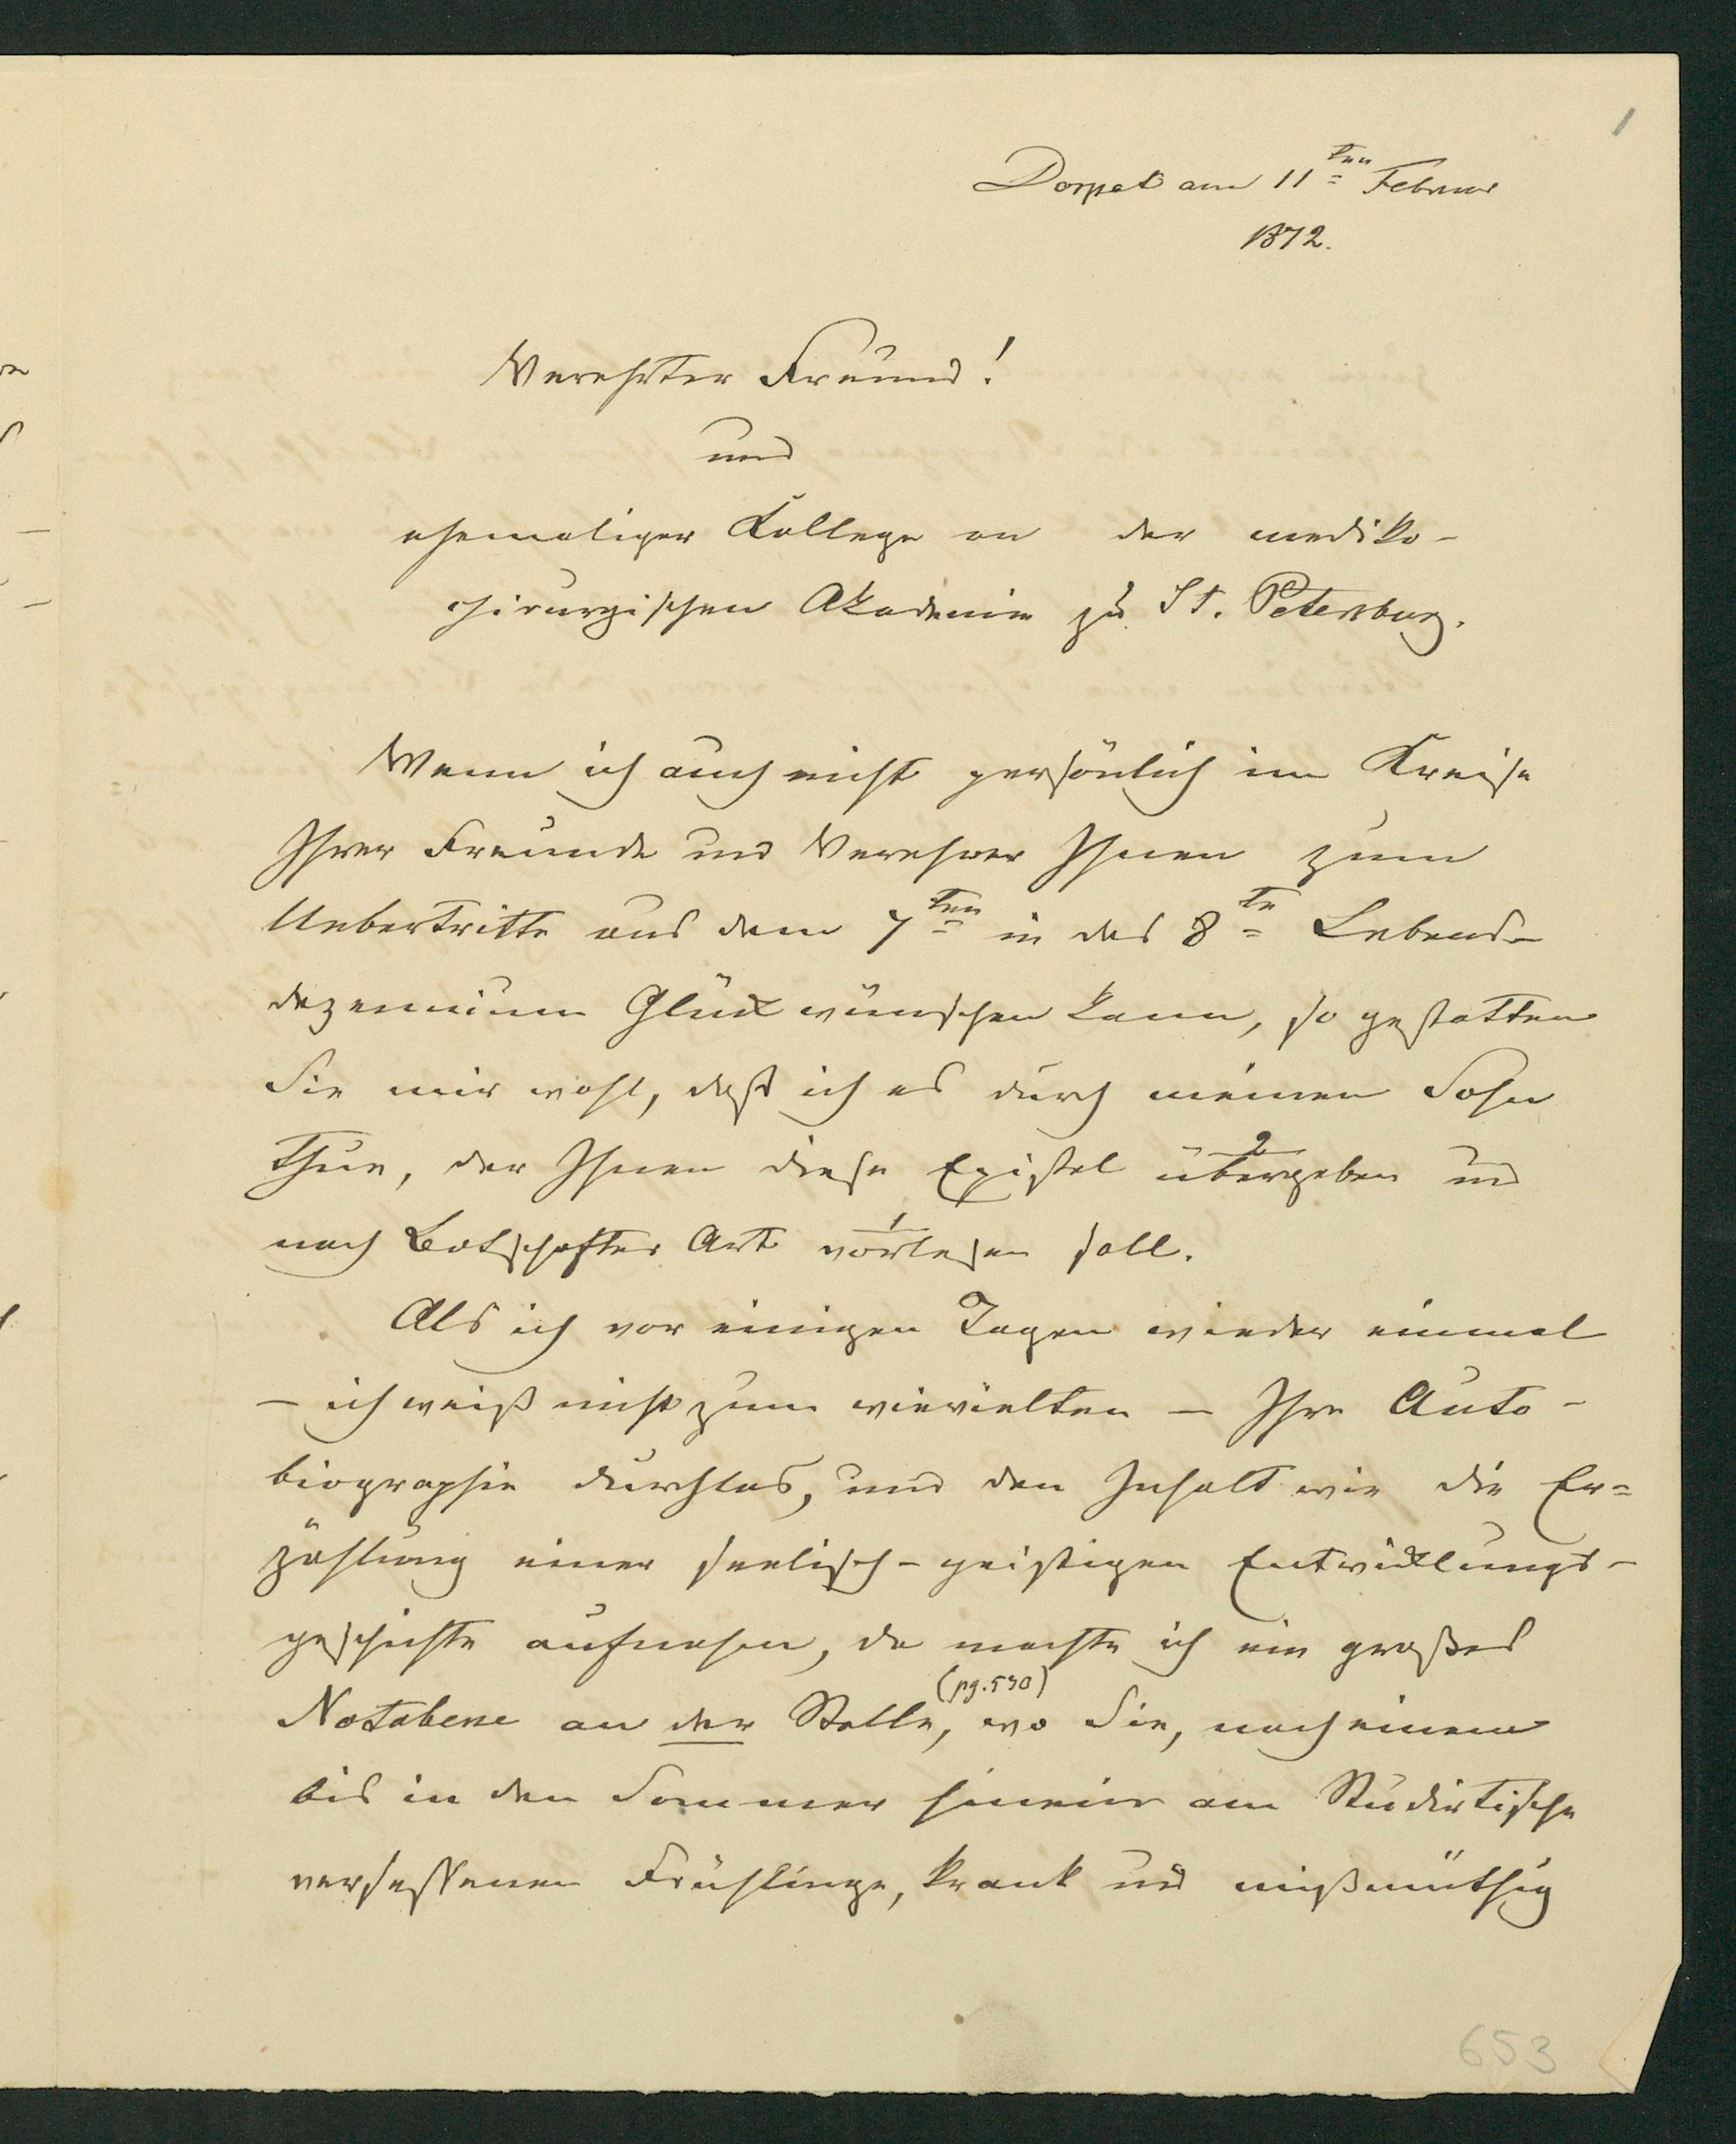 1
Dorpat am 11ten Februar
1872.
Verehrter Freund!
und
ehemaliger Kollege an der mediko-
chirurgischen Akademie zu St. Petersburg.
Wenn ich auch nicht persönlich im Kreise
Ihrer Freunde und Verehrer Ihnen zum
Uebertritte aus dem 7ten in das 8te Lebens-
dezennium Glück wünschen kann, so gestatten
Sie mir wohl, daß ich es durch meinen Sohn
thue, der Ihnen diese Epistel übergeben 2 und
nach Botschafter Art vorlesen 1 soll.
Als ich vor einigen Tagen wieder einmal
- ich weiß nicht zum wievielten - Ihre Auto-
biographie durchlas, und den Inhalt wie die Er=
zählung einer seelisch-geistigen Entwicklungs-
geschichte aufnahm, da machte ich ein großes
(pg. 530)
Notabene an der Stelle, wo Sie, nach einem
bis in den Sommer hinein am Studirtische
versessenen Frühlinge, krank und mißmüthig
653